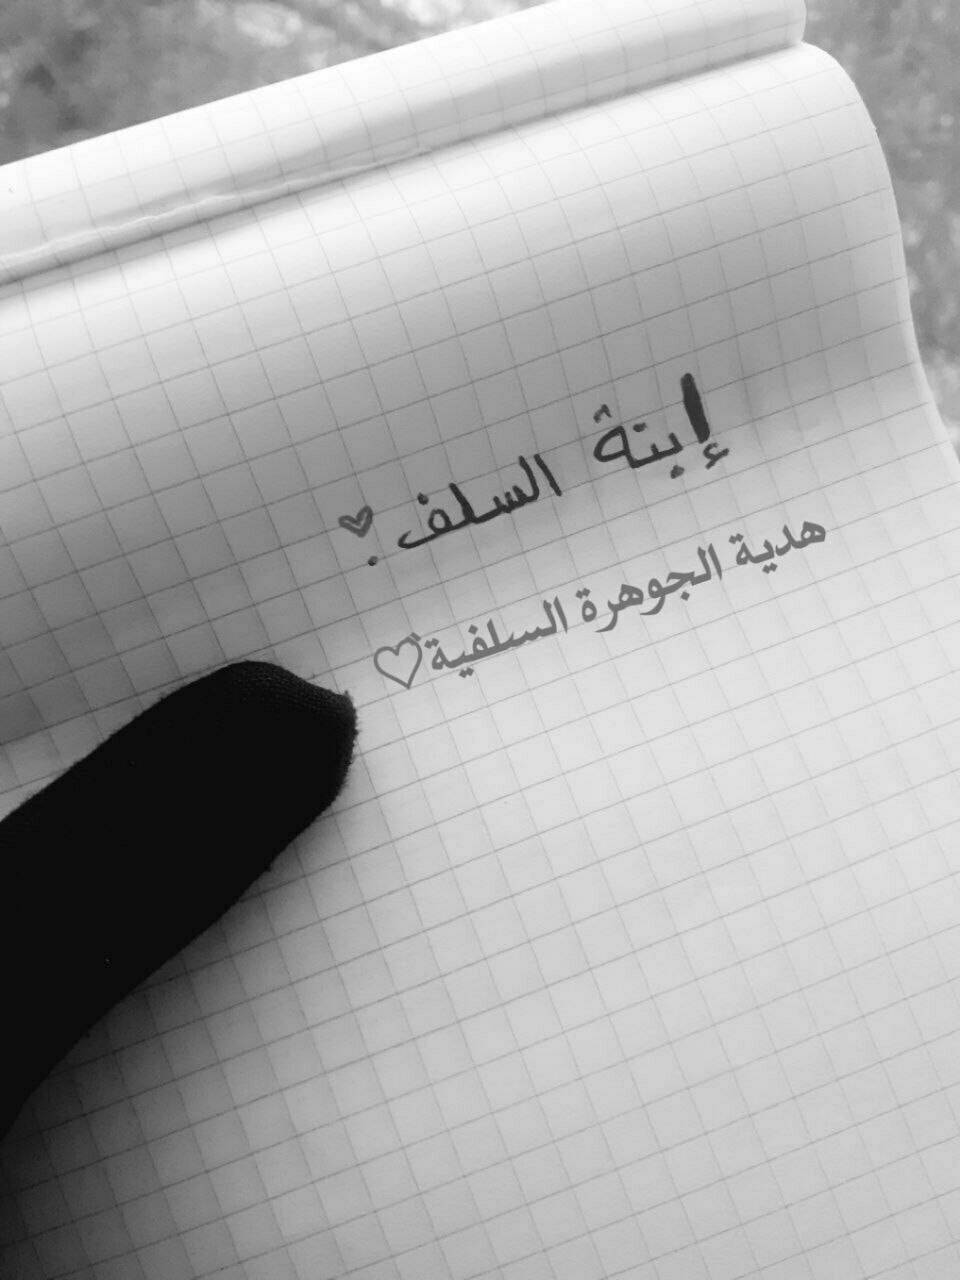 إبنة السلف. ♡
هدية الجوهرة السلفية♡